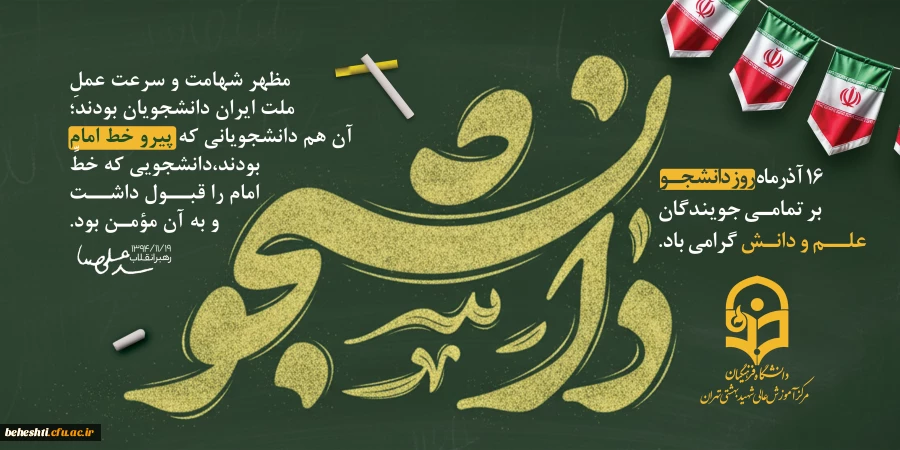 ۱۶ آذرماه روز دانشجو
بر تمامی جویندگان
علم و دانش گرامی باد.
دانشجو
مظهر شهامت و سرعت عملِ
ملت ایران دانشجویان بودند؛
آن هم دانشجویانی که پیرو خط امام
بودند،دانشجویی که خطِّ
امام را قبول داشت
و به آن مؤمن بود.
۱۳۹۴/۱۱/۱۹
رهبر انقلاب
سیدعلی
دانشگاه فرهنگیان
مرکز آموزش عالی شهید بهشتی تهران
beheshti.cfu.ac.ir